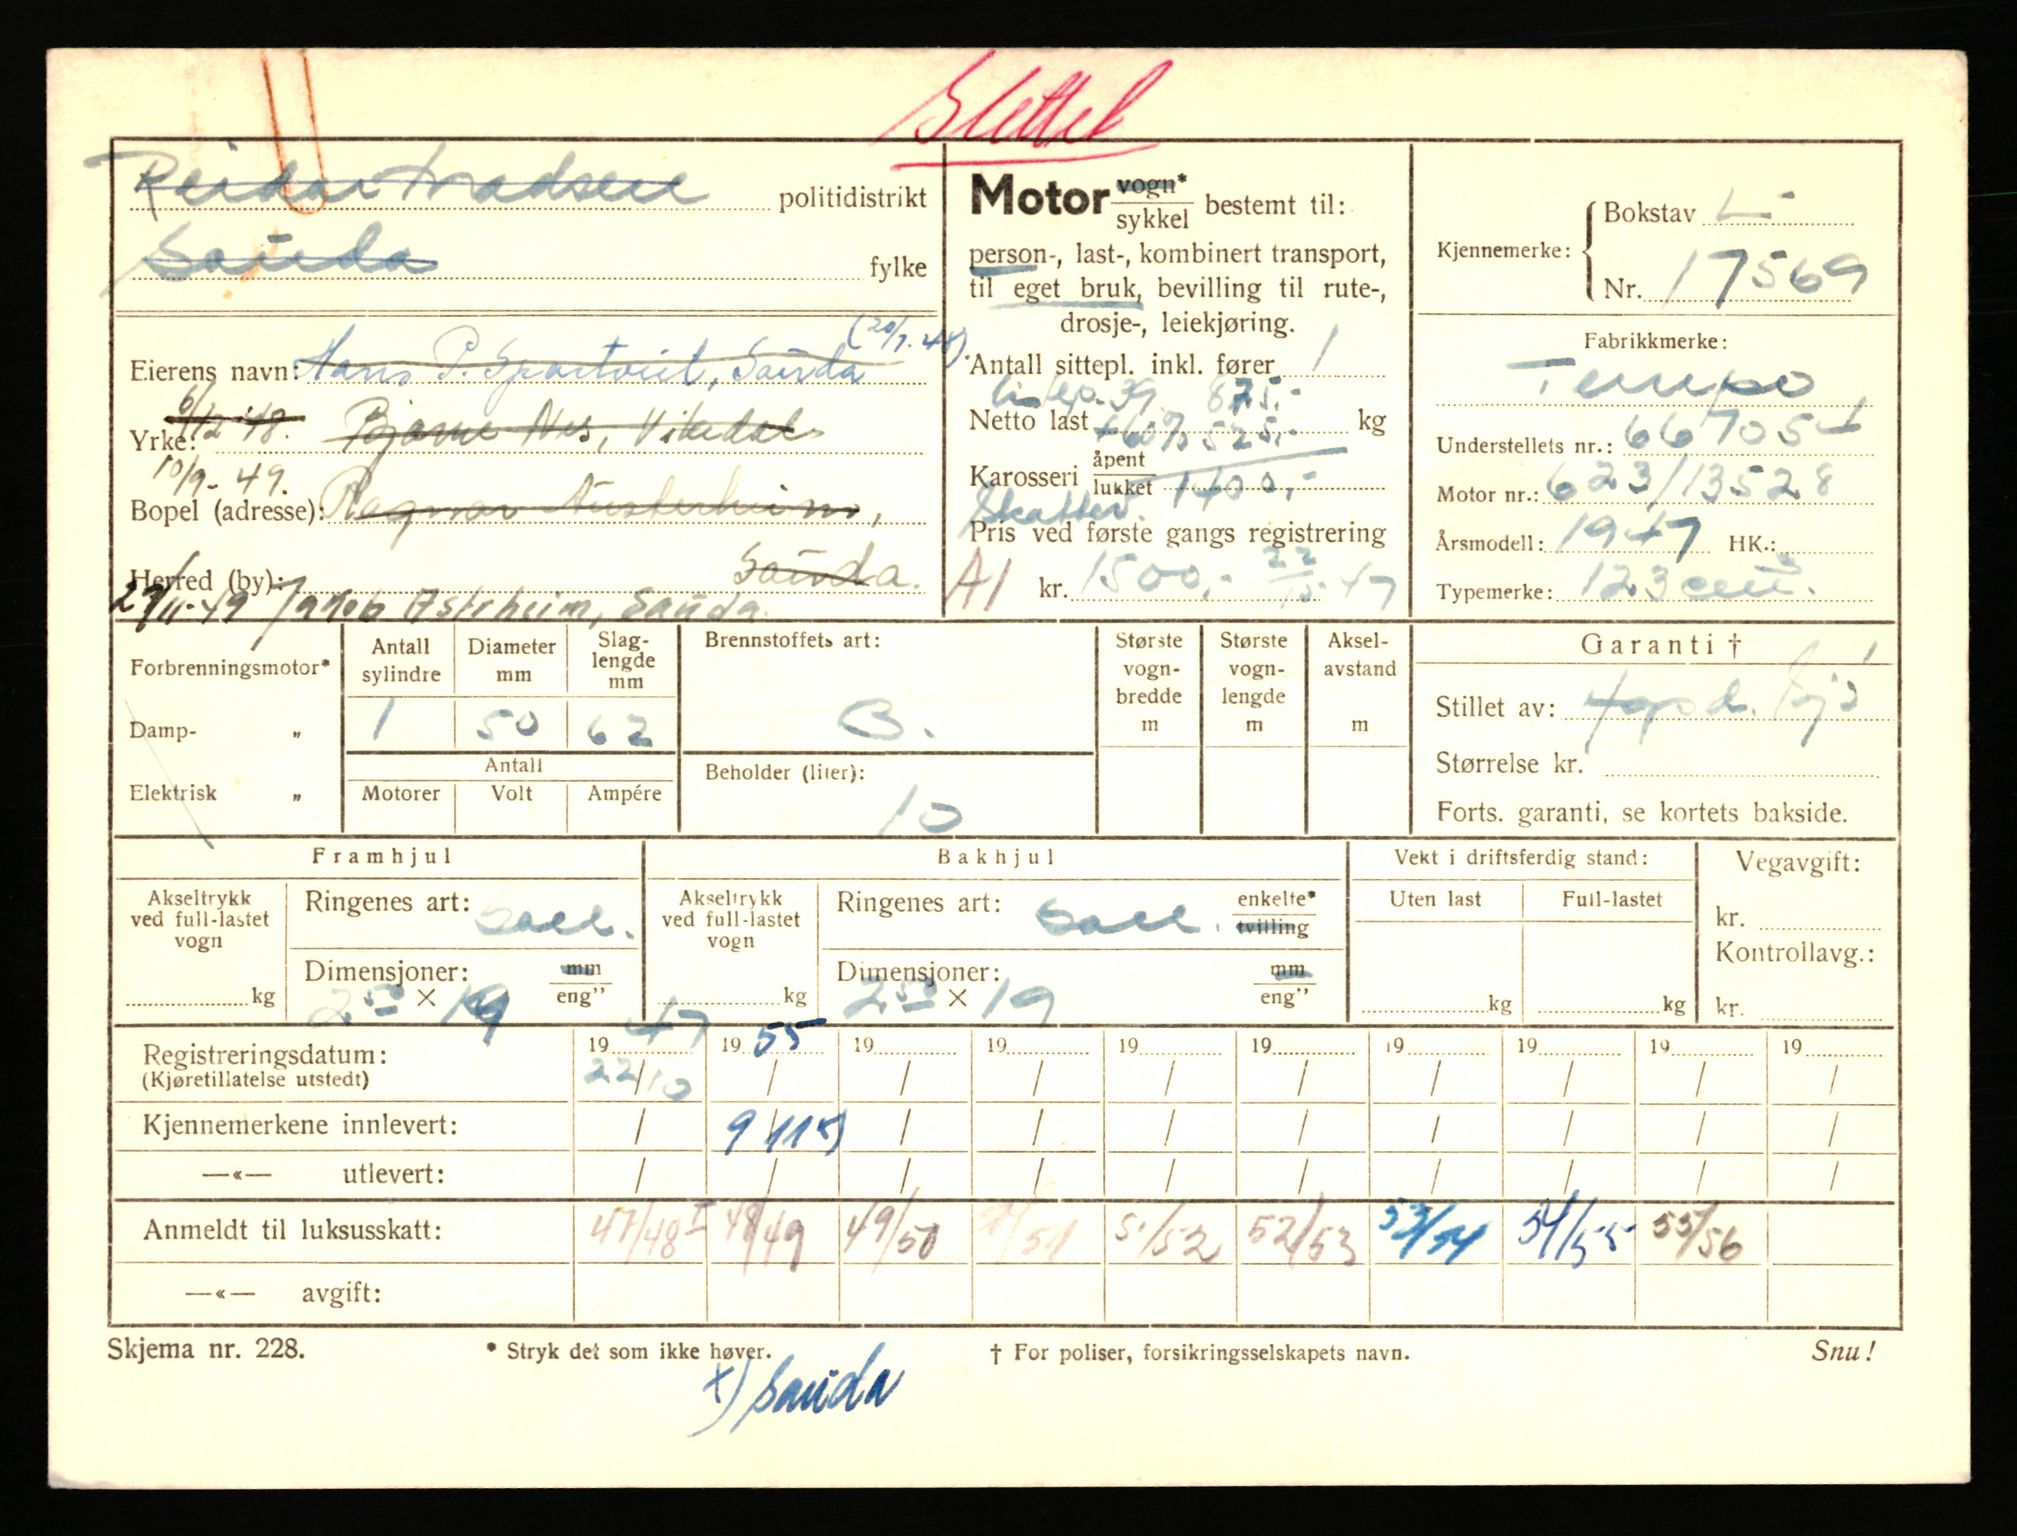 Slettet
Reidar Madsen politidistrikt
Sauda fylke
Eierens navn: Hans P. Spartveit, Sauda (20/7. 48).
6/12 48.
Yrke: Bjarne Nes, Vikedal
10/9- 49.
Bopel (adresse): Ragnar Austerheim,
Herred (by): Sauda.
29/11-49 Jakob Østrheim, Sauda.
Motor vogn* sykkel bestemt til:
person-, last-, kombinert transport,
til eget bruk, bevilling til rute-,
drosje-, leiekjøring.
Antall sittepl. inkl. fører 1
Listep. 39 875,-
Netto last + 60% 525,- kg
Karosseri åpent lukket 1400,-
Skattev.
Pris ved første gangs registrering
A1 kr. 1500,- 22/10-47
Kjennemerke: Bokstav L-
Nr. 17569
Fabrikkmerke:
Tempo
Understellets nr.: 667054
Motor nr.: 623/13528
Årsmodell: 1947 HK.:
Typemerke: 123 cm³.
Forbrenningsmotor*
Damp- „
Elektrisk „
Antall sylindre
Diameter mm
Slag-lengde mm
1 50 62
Antall
Motorer Volt Ampére
Brennstoffets art:
B.
Beholder (liter):
10
Største vogn-bredde m
Største vogn-lengde m
Aksel-avstand m
Garanti †
Stillet av:
Størrelse kr.
Forts. garanti, se kortets bakside.
Framhjul
Akseltrykk ved full-lastet vogn
kg
Ringenes art: Ball.
Dimensjoner: mm eng”
2 50 × 19
Bakhjul
Akseltrykk ved full-lastet vogn
kg
Ringenes art: Ball. enkelte* tvilling
Dimensjoner: mm eng”
2 50 × 19
Vekt i driftsferdig stand:
Uten last Full-lastet
kg kg
Vegavgift:
kr.
Kontrollavg.:
kr.
Registreringsdatum: 19 47 19 55 19 19 19 19 19 19 19 19
(Kjøretillatelse utstedt) 22/10 / / / / / / / / /
Kjennemerkene innlevert: / 9/11 x) / / / / / / / /
—«— utlevert: / / / / / / / / / /
Anmeldt til luksusskatt: 47/48 I 48/49 49/50 /51 51/52 52/53 53/54 54/55 55/56
—«— avgift:
Skjema nr. 228. * Stryk det som ikke høver. † For poliser, forsikringsselskapets navn. Snu!
x) Sauda